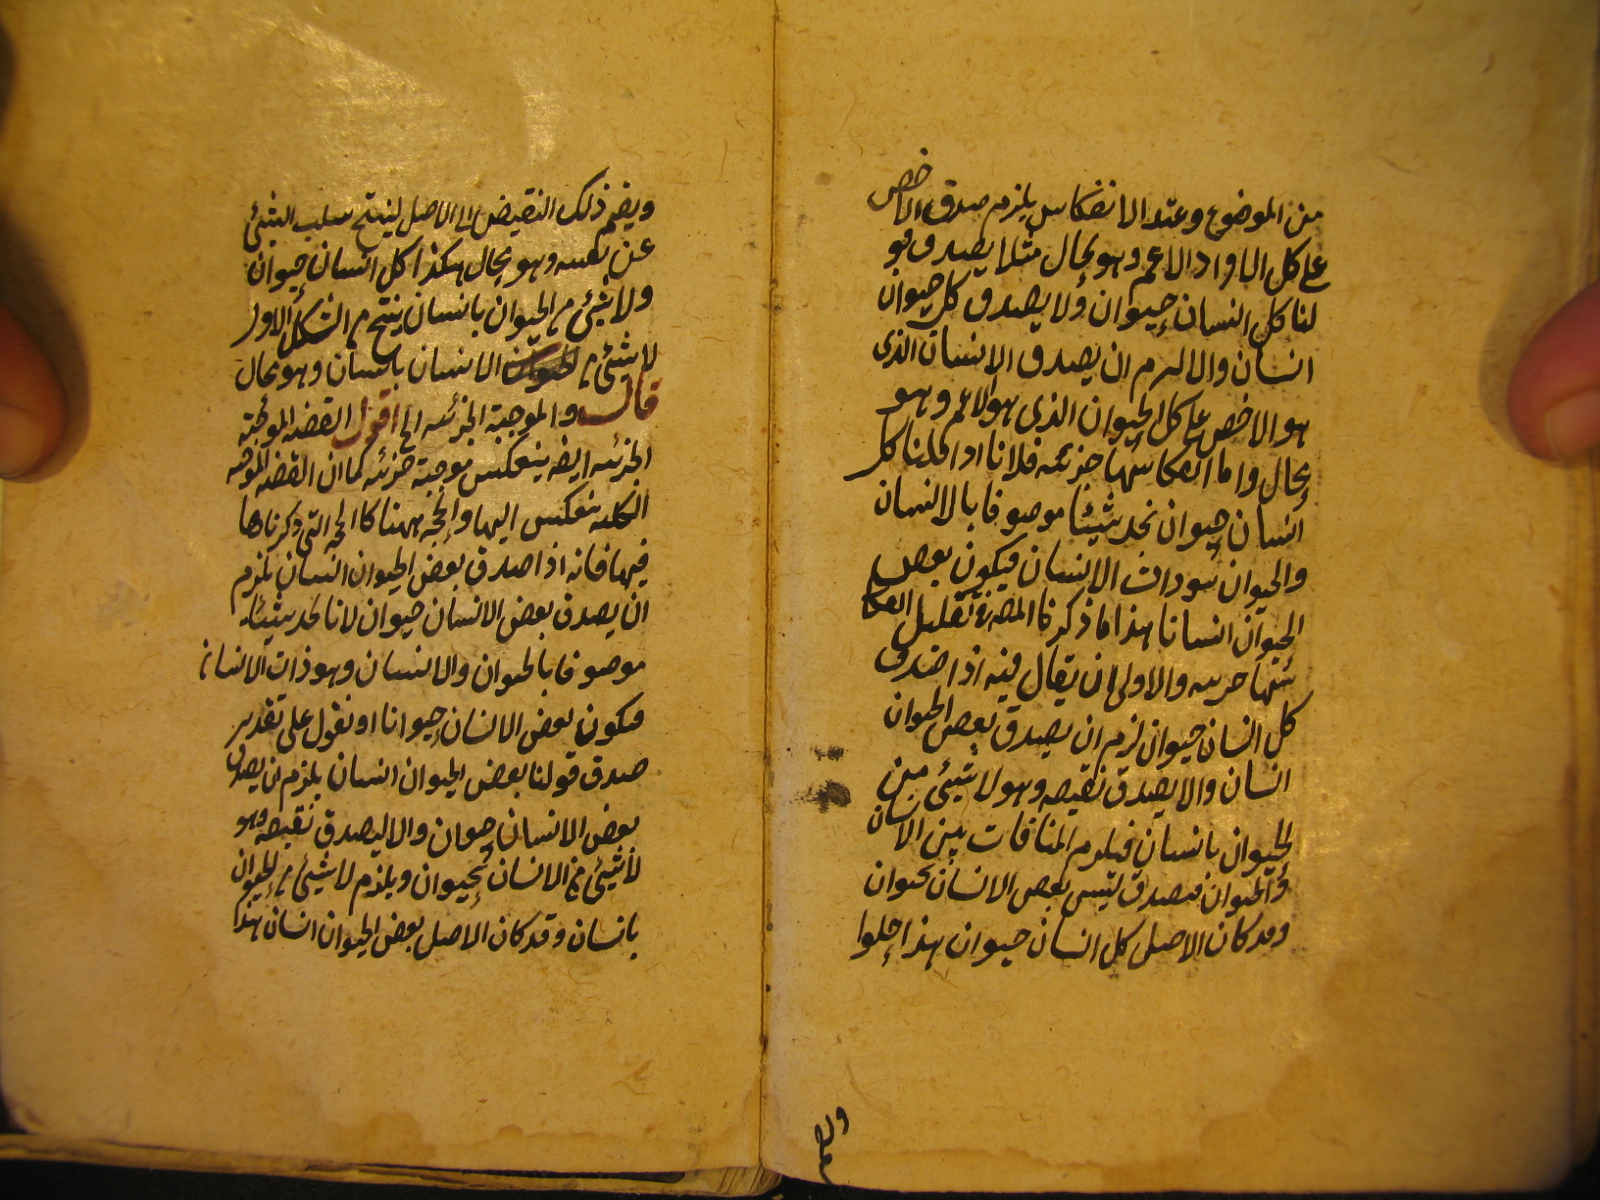 من الموضوع وعند الانفكاس يلزم صدق الاخص
على كل افراد الاعم وهو محال مثلا يصدق قو
لنا كل انسان حيوان ولا يصدق كل حيوان
انسان والا لزم ان يصدق الانسان الذى
هو الاخص على كل الحيوان الذى هو الاعم وهو
محال واما انعكاسها جزئية فلانا اذا قلنا كل
انسان حيوان نجد شيئا موصوفا بالانسان
والحيوان وهو ذات الانسان فيكون بعض
الحيوان انسانا هذا ما ذكرنا المصنف فى تعليل انعكا
سها جزئية والاولى ان يقال فيه اذا صدق
كل انسان حيوان لزم ان يصدق بعض الحيوان
انسان والا يصدق نقيضه وهو لا شيئ من
الحيوان بانسان فيلزم المنافات بين الانسان
والحيوان فيصدق ليس بعض الانسان بحيوان
وقد كان الاصل كل انسان حيوان هذا خلوا
ويضم
ويضم ذلك النقيض الى الاصل لينتج سلب الشيئ
عن نفسه وهو محال هكذا كل انسان حيوان
ولا شيئ من الحيوان بانسان ينتج من الشكل الاول
لا شيئ من الانسان بانسان وهو محال
قال والموجبة الجزئية الخ اقول القضية الموجبة
الجزئية ايضه ينعكس موجبة جزئية كما ان القضية الموجبة
الكلية تنعكس اليها والحجة ههنا كالحجة التى ذكرناها
فيها فانه اذا صدق بعض الحيوان انسان يلزم
ان يصدق بعض الانسان حيوان لانا نجد شيئا
موصوفا بالحيوان والانسان وهو ذات الانسان
فيكون بعض الانسان حيوانا او نقول على تقدير
صدق قولنا بعض الحيوان انسان يلزم ان يصدق
بعض الانسان حيوان والا ليصدق نقيضه وهو
لا شيئ من الانسان بحيوان ويلزم لا شيئ من الحيوان
بانسان وقد كان الاصل بعض الحيوان انسان هذا